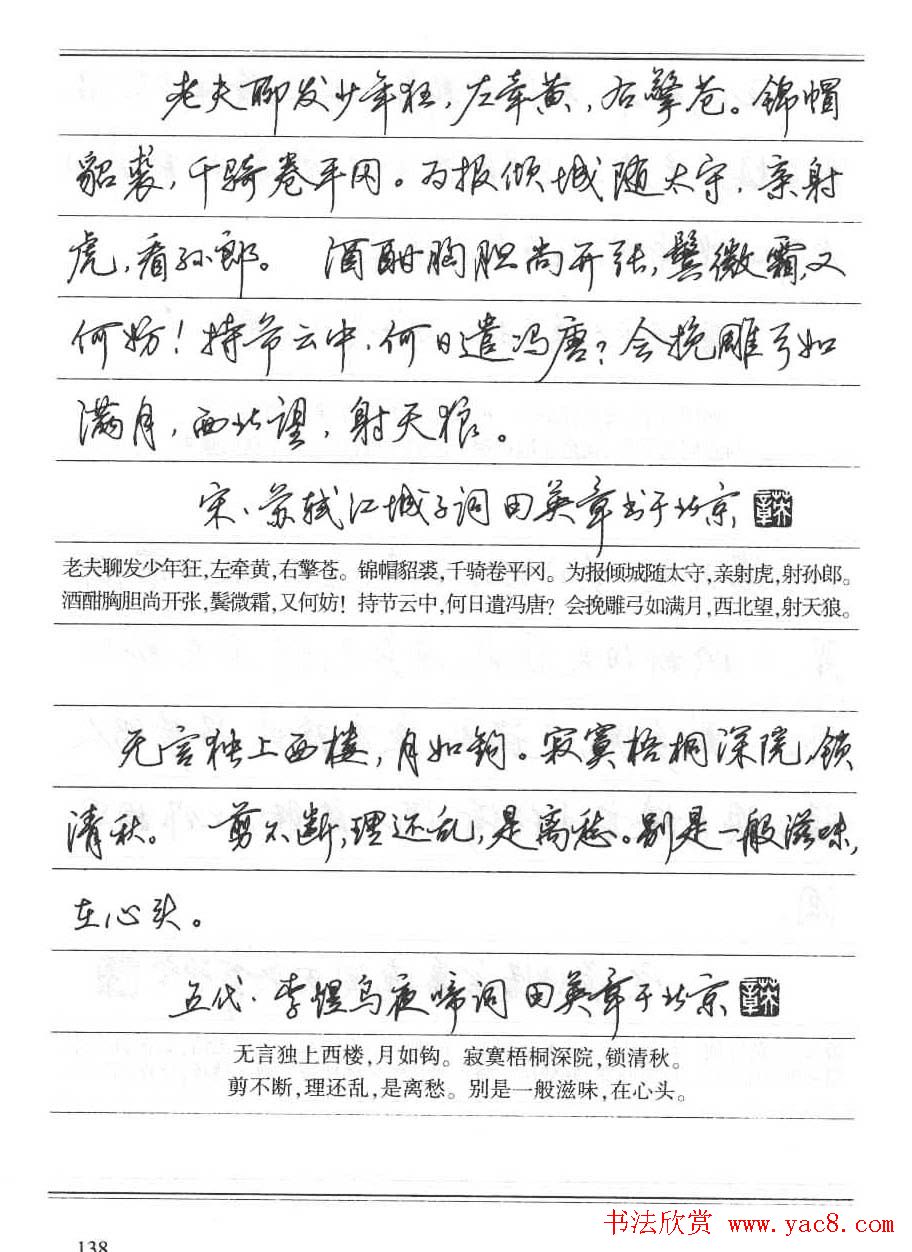 老夫聊发少年狂，左牵黄，右擎苍。锦帽
貂裘，千骑卷平冈。为报倾城随太守，亲射
虎，看孙郎。 酒酣胸胆尚开张，鬓微霜，又
何妨！持节云中，何日遣冯唐？会挽雕弓如
满月，西北望，射天狼。
宋、苏轼江城子词 田英章书于北京
老夫聊发少年狂，左牵黄，右擎苍。锦帽貂裘，千骑卷平冈。为报倾城随太守，亲射虎，射孙郎。
酒酣胸胆尚开张，鬓微霜，又何妨！持节云中，何日遣冯唐？会挽雕弓如满月，西北望，射天狼。
无言独上西楼，月如钩。寂寞梧桐深院，锁
清秋。 剪不断，理还乱，是离愁。别是一般滋味，
在心头。
五代、李煜乌夜啼词 田英章于北京
无言独上西楼，月如钩。寂寞梧桐深院，锁清秋。
剪不断，理还乱，是离愁。别是一般滋味，在心头。
书法欣赏 www.yac8.com
138